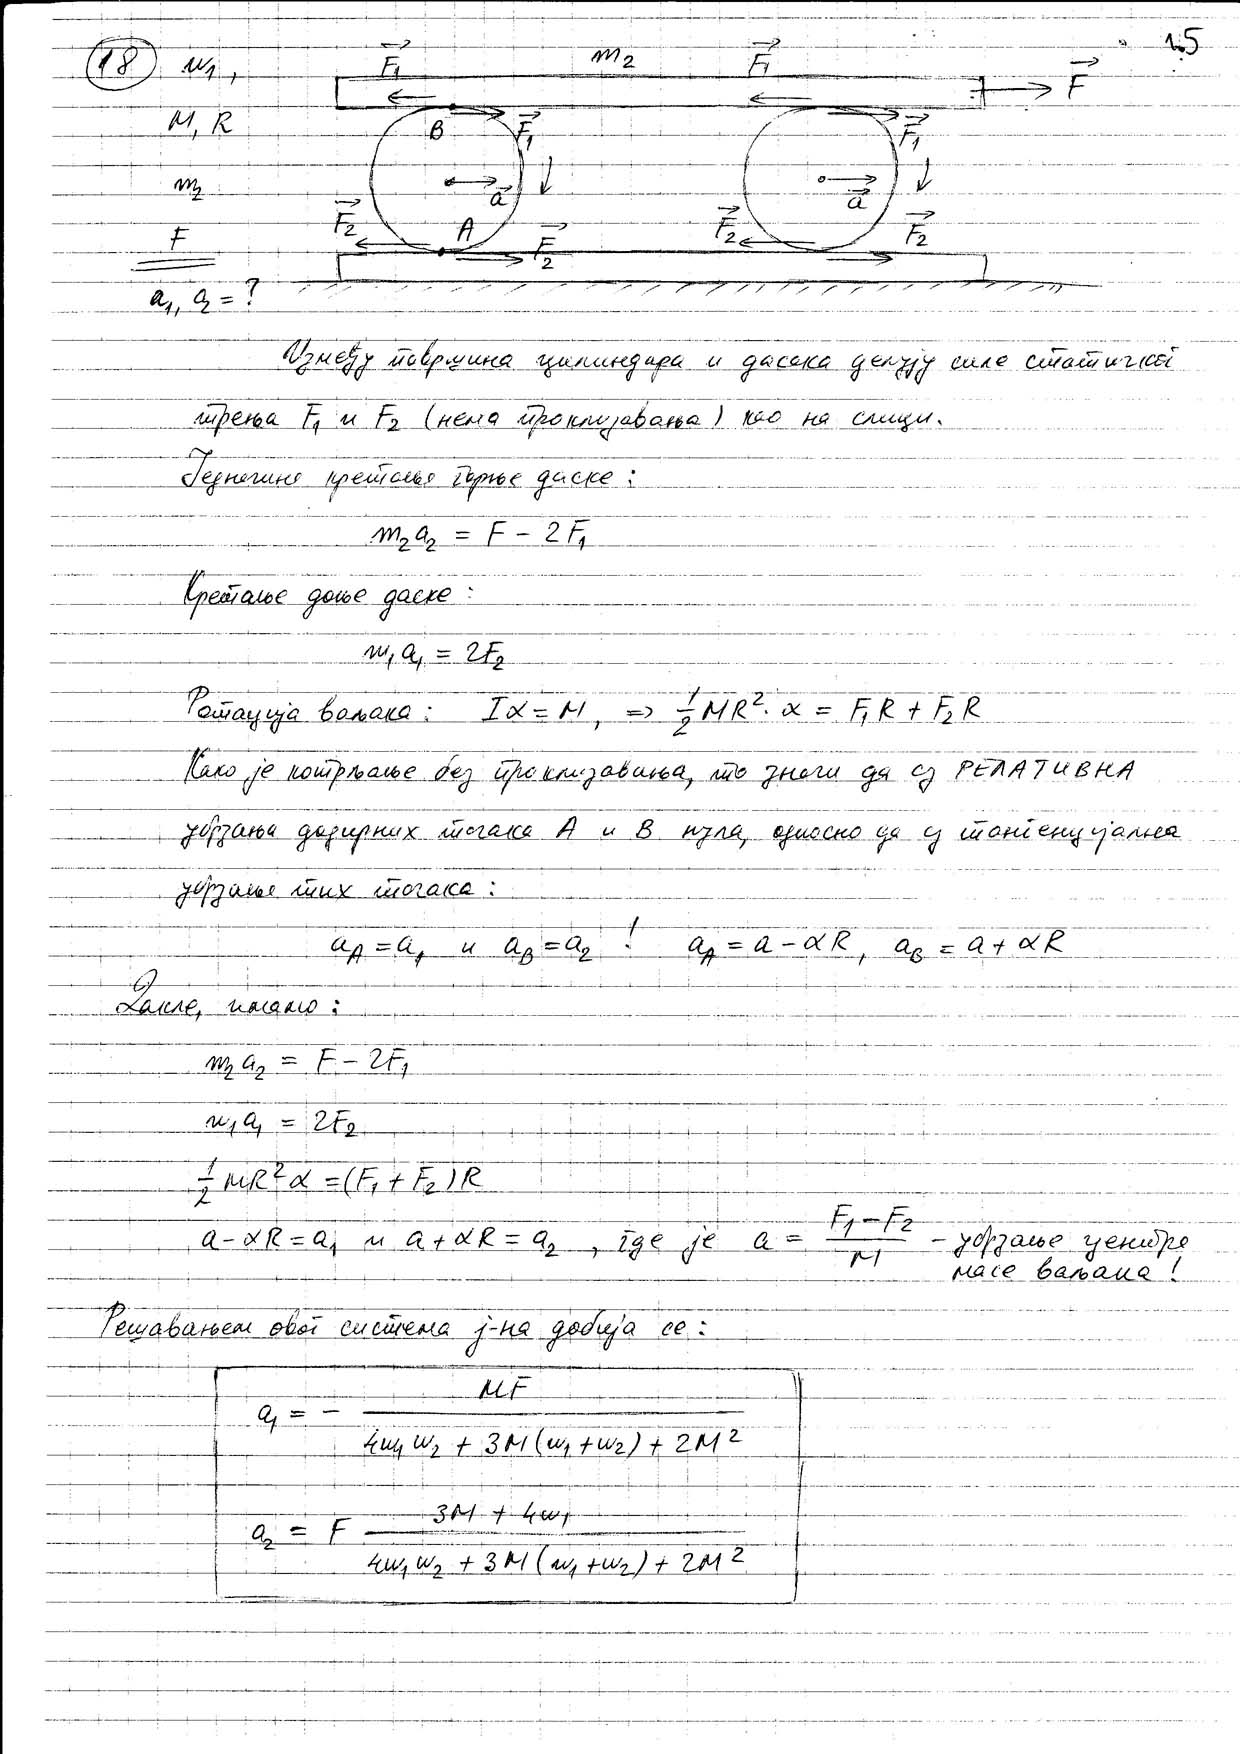 18 m₁, M, R m₂ F a₁, a₂ = ?
1.5
F₁ m₂ F₁ F
B F₁ F₁
a a
F₂ A F₂ F₂ F₂
Између површина цилиндара и дасака делују силе статичког
трења F₁ и F₂ (нема проклизавања) као на слици.
Једначине кретања горње даске:
m₂a₂ = F - 2F₁
Кретање доње даске:
m₁a₁ = 2F₂
Ротација ваљака: Iα = M, ⇒ ½MR²·α = F₁R + F₂R
Како је котрљање без проклизавања, то значи да су РЕЛАТИВНА
убрзања додирних тачака A и B нула, односно да су тангенцијална
убрзање тих тачака:
a_A = a₁ и a_B = a₂ ! a_A = a - αR, a_B = a + αR
Дакле, имамо:
m₂a₂ = F - 2F₁
m₁a₁ = 2F₂
½MR²α = (F₁ + F₂)R
a - αR = a₁ и a + αR = a₂, где је a = (F₁ - F₂)/M - убрзање центра
масе ваљака!
Решавањем овог система ј-на добија се:
a₁ = - MF/(4m₁m₂ + 3M(m₁+m₂) + 2M²)
a₂ = F (3M + 4m₁)/(4m₁m₂ + 3M(m₁+m₂) + 2M²)